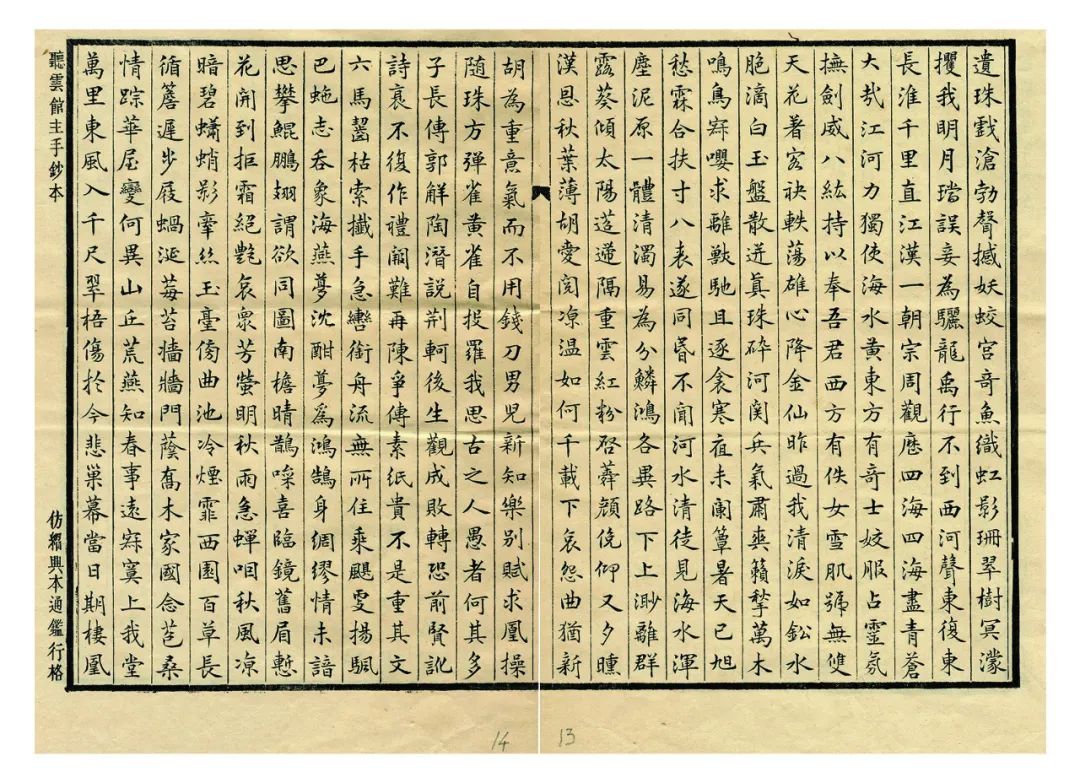 遺珠戲滄勃聲撼妖蛟宮奇魚織虹影珊翠樹冥濛
攫我明月璫誤妾為驪龍禹行不到西河聲東復東
長淮千里直江漢一朝宗周觀歷四海四海盡青蒼
大哉江河力獨使海水黃東方有奇士姣服占靈氛
撫劍威八紘持以奉吾君西方有佚女雪肌號無雙
天花著袂軼蕩雄心降金仙昨過我清淚如鉛水
脃滴白玉盤散迸真珠碎河関兵氣肅爽籟萬木
鳴鳥寂嚶求離獸馳且逐衾寒夜未闌簟暑天已旭
愁霖合扶寸八表遂同昏不聞河水清徒見海水渾
塵泥原一體清濁易為分鱗鴻各異路下上渺離群
露葵傾太陽迢遰隔重雲紅粉啓蕣顔俛仰又夕曛
漢恩秋葉薄胡愛閲凉温如何千載下哀怨曲猶新
胡為重意氣而不用錢刀男児新知樂別賦求凰操
随珠方彈雀黃雀自投羅我思古之人愚者何其多
子長傳郭解陶潛説荆軻後生觀成敗轉恐前賢訛
詩衰不復作禮闕難再陳爭傳素紙貴不是重其文
六馬齧枯索攕手急轡銜舟流無所住乘颸揚颿
巴虵志吞象海燕夢沈酣夢為鴻鵠身綢繆情未諳
思攀鯤鵬翅謂欲同圖南檐晴鵲噪喜臨鏡舊眉慙
花開到拒霜絕艷哀衆芳螢明秋雨急蟬咽秋風凉
暗碧蠨蛸影牽絲玉臺傍曲池冷煙霏西園百草長
循簷遲步屐蝸涎莓苔牆牆門蔭喬木家國念苞桑
情踪華屋變何異山丘荒燕知春事遠寂寞上我堂
萬里東風入千尺翠梧傷於今悲巢幕當日期棲凰
聽雲館主手鈔本
仿紹興本通鑑行格
13
14